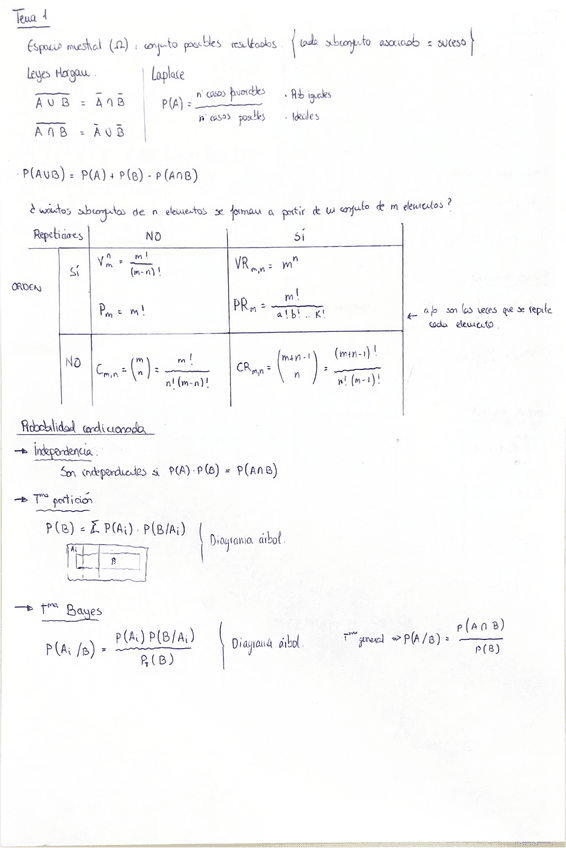 Tema 1
Espacio muestral (Ω) : conjunto posibles resultados. { cada subconjunto asociado = suceso }
Leyes Morgan.
A̅ ̅∪̅ ̅B̅ = A̅ ∩ B̅
A̅ ̅∩̅ ̅B̅ = A̅ ∪ B̅
Laplace
P(A) = nº casos favorables / nº casos posibles
· Prob iguales
· Ideales
· P(A∪B) = P(A) + P(B) - P(A∩B)
¿cuántos subconjuntos de n elementos se forman a partir de un conjunto de m elementos?
Repeticiones NO SÍ
ORDEN
SÍ
V_m^n = m! / (m-n)!
VR_m,n = m^n
P_m = m!
PR_m = m! / a! b! .. K!
← a/b son las veces que se repite
cada elemento.
NO
C_m,n = (m n) = m! / n! (m-n)!
CR_m,n = (m+n-1 n) = (m+n-1)! / n! (m-1)!
Probabilidad condicionada
→ Independencia.
Son independientes si P(A) · P(B) = P(A∩B)
→ Tma partición
P(B) = Σ P(Ai) · P(B/Ai)
Diagrama árbol.
Ai
B
→ Tma Bayes
P(Ai/B) = P(Ai) P(B/Ai) / Pt(B)
Diagrama árbol.
Tma general ⇒ P(A/B) = P(A∩B) / P(B)